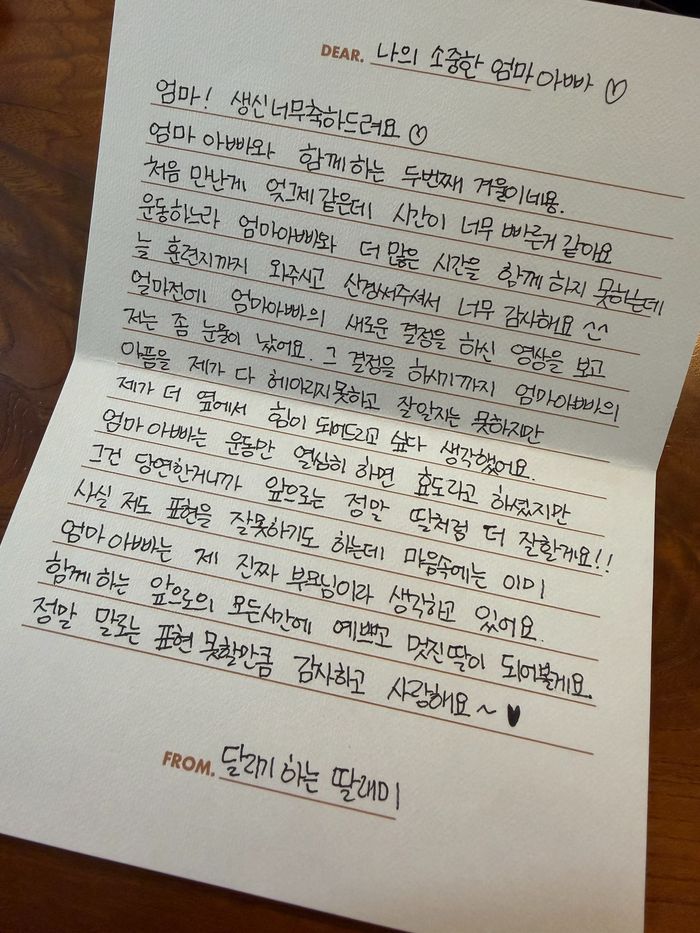 DEAR. 나의 소중한 엄마아빠 ♡
엄마! 생신너무축하드려요 ♡
엄마 아빠와 함께하는 두번째 겨울이네용.
처음 만난게 엊그제같은데 시간이 너무 빠른거 같아요
운동하느라 엄마아빠와 더 많은 시간을 함께 하지 못하는데
늘 훈련지까지 와주시고 신경써주셔서 너무 감사해요 ^^
얼마전에 엄마아빠의 새로운 결정을 하신 영상을 보고
저는 좀 눈물이 났어요. 그 결정을 하시기까지 엄마아빠의
아픔을 제가 다 헤아리지못하고 잘알지는 못하지만
제가 더 옆에서 힘이 되어드리고 싶다 생각했어요.
엄마아빠는 운동만 열심히 하면 효도라고 하셨지만
그건 당연한거니까 앞으로는 정말 딸처럼 더 잘할게요!!
사실 저도 표현을 잘못하기도 하는데 마음속에는 이미
엄마아빠는 제 진짜 부모님이라 생각하고 있어요.
함께하는 앞으로의 모든시간에 예쁘고 멋진딸이 되어볼게요.
정말 말로는 표현 못할만큼 감사하고 사랑해요~ ♥
FROM. 달리기 하는 딸래미